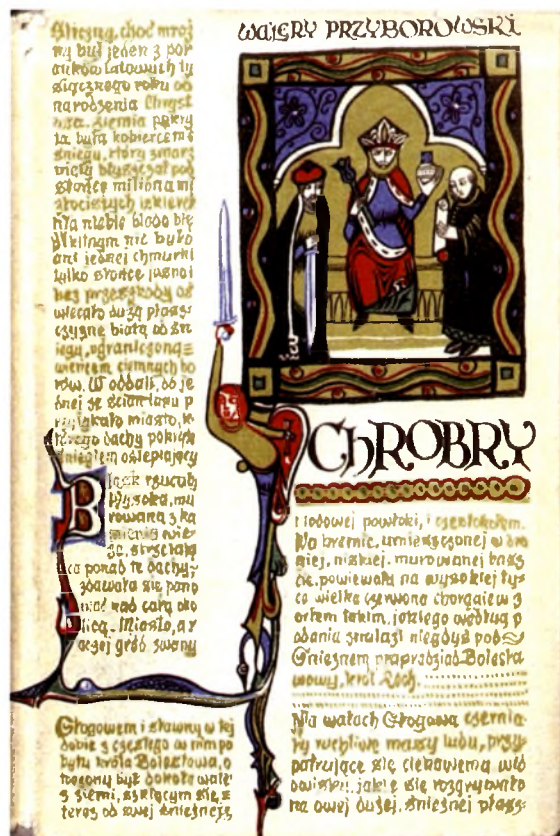 WALERY PRZYBOROWSKI
CHROBRY
śliczny, choć mroź
ny był jeden z por
anków lutowych ty
siącznego roku od
narodzenia Chryst
usa. Ziemia pokry
ta była kobiercem
śniegu, który zmarz
nięty błyszczał pod
słońce milionami
złocistych iskierek
Na niebie blado błę
kitnym nie było
ani jednej chmurki
tylko słońce jasno i
bez przeszkody oś
wiecało dużą płasz-
czyznę białą od śn
iegu, ograniczoną
wieńcem ciemnych bo
rów. W oddali, do je
dnej ze ścian lasu p
rzytykało miasto, k
tórego dachy pokryte
śniegiem oślepiający
Blask rzucały
Wysoka, mu
rowana z ka
mienia wie-
ża, strzelają
ca ponad te dachy,
zdawała się pano
wać nad całą oko
licą. Miasto, a r
aczej gród zwany
Głogowem i sławny w tej
dobie z częstego w nim po
bytu króla Bolesława, o
toczony był dokoła wałe
z ziemi, szklącym się, z
teraz od swej śnieżnej,
i lodowej powłoki, i częstokołem.
Na bramie, umieszczonej w
niej, nizkiej, murowanej basz
cie, powiewała na wysokiej ty
ce wielka czerwona chorągiew z
orłem takim, jakiego według p
odania znalazł niegdyś pod
Gnieznem prapradziad Bolesła
wowy, król Lech.
Na wałach Głogowa czernia
ły ruchliwe massy ludu, przy
patrujące się ciekawemu wid
owisku, jakie się rozgrywało
na owej dużej, śnieżnej płasz-